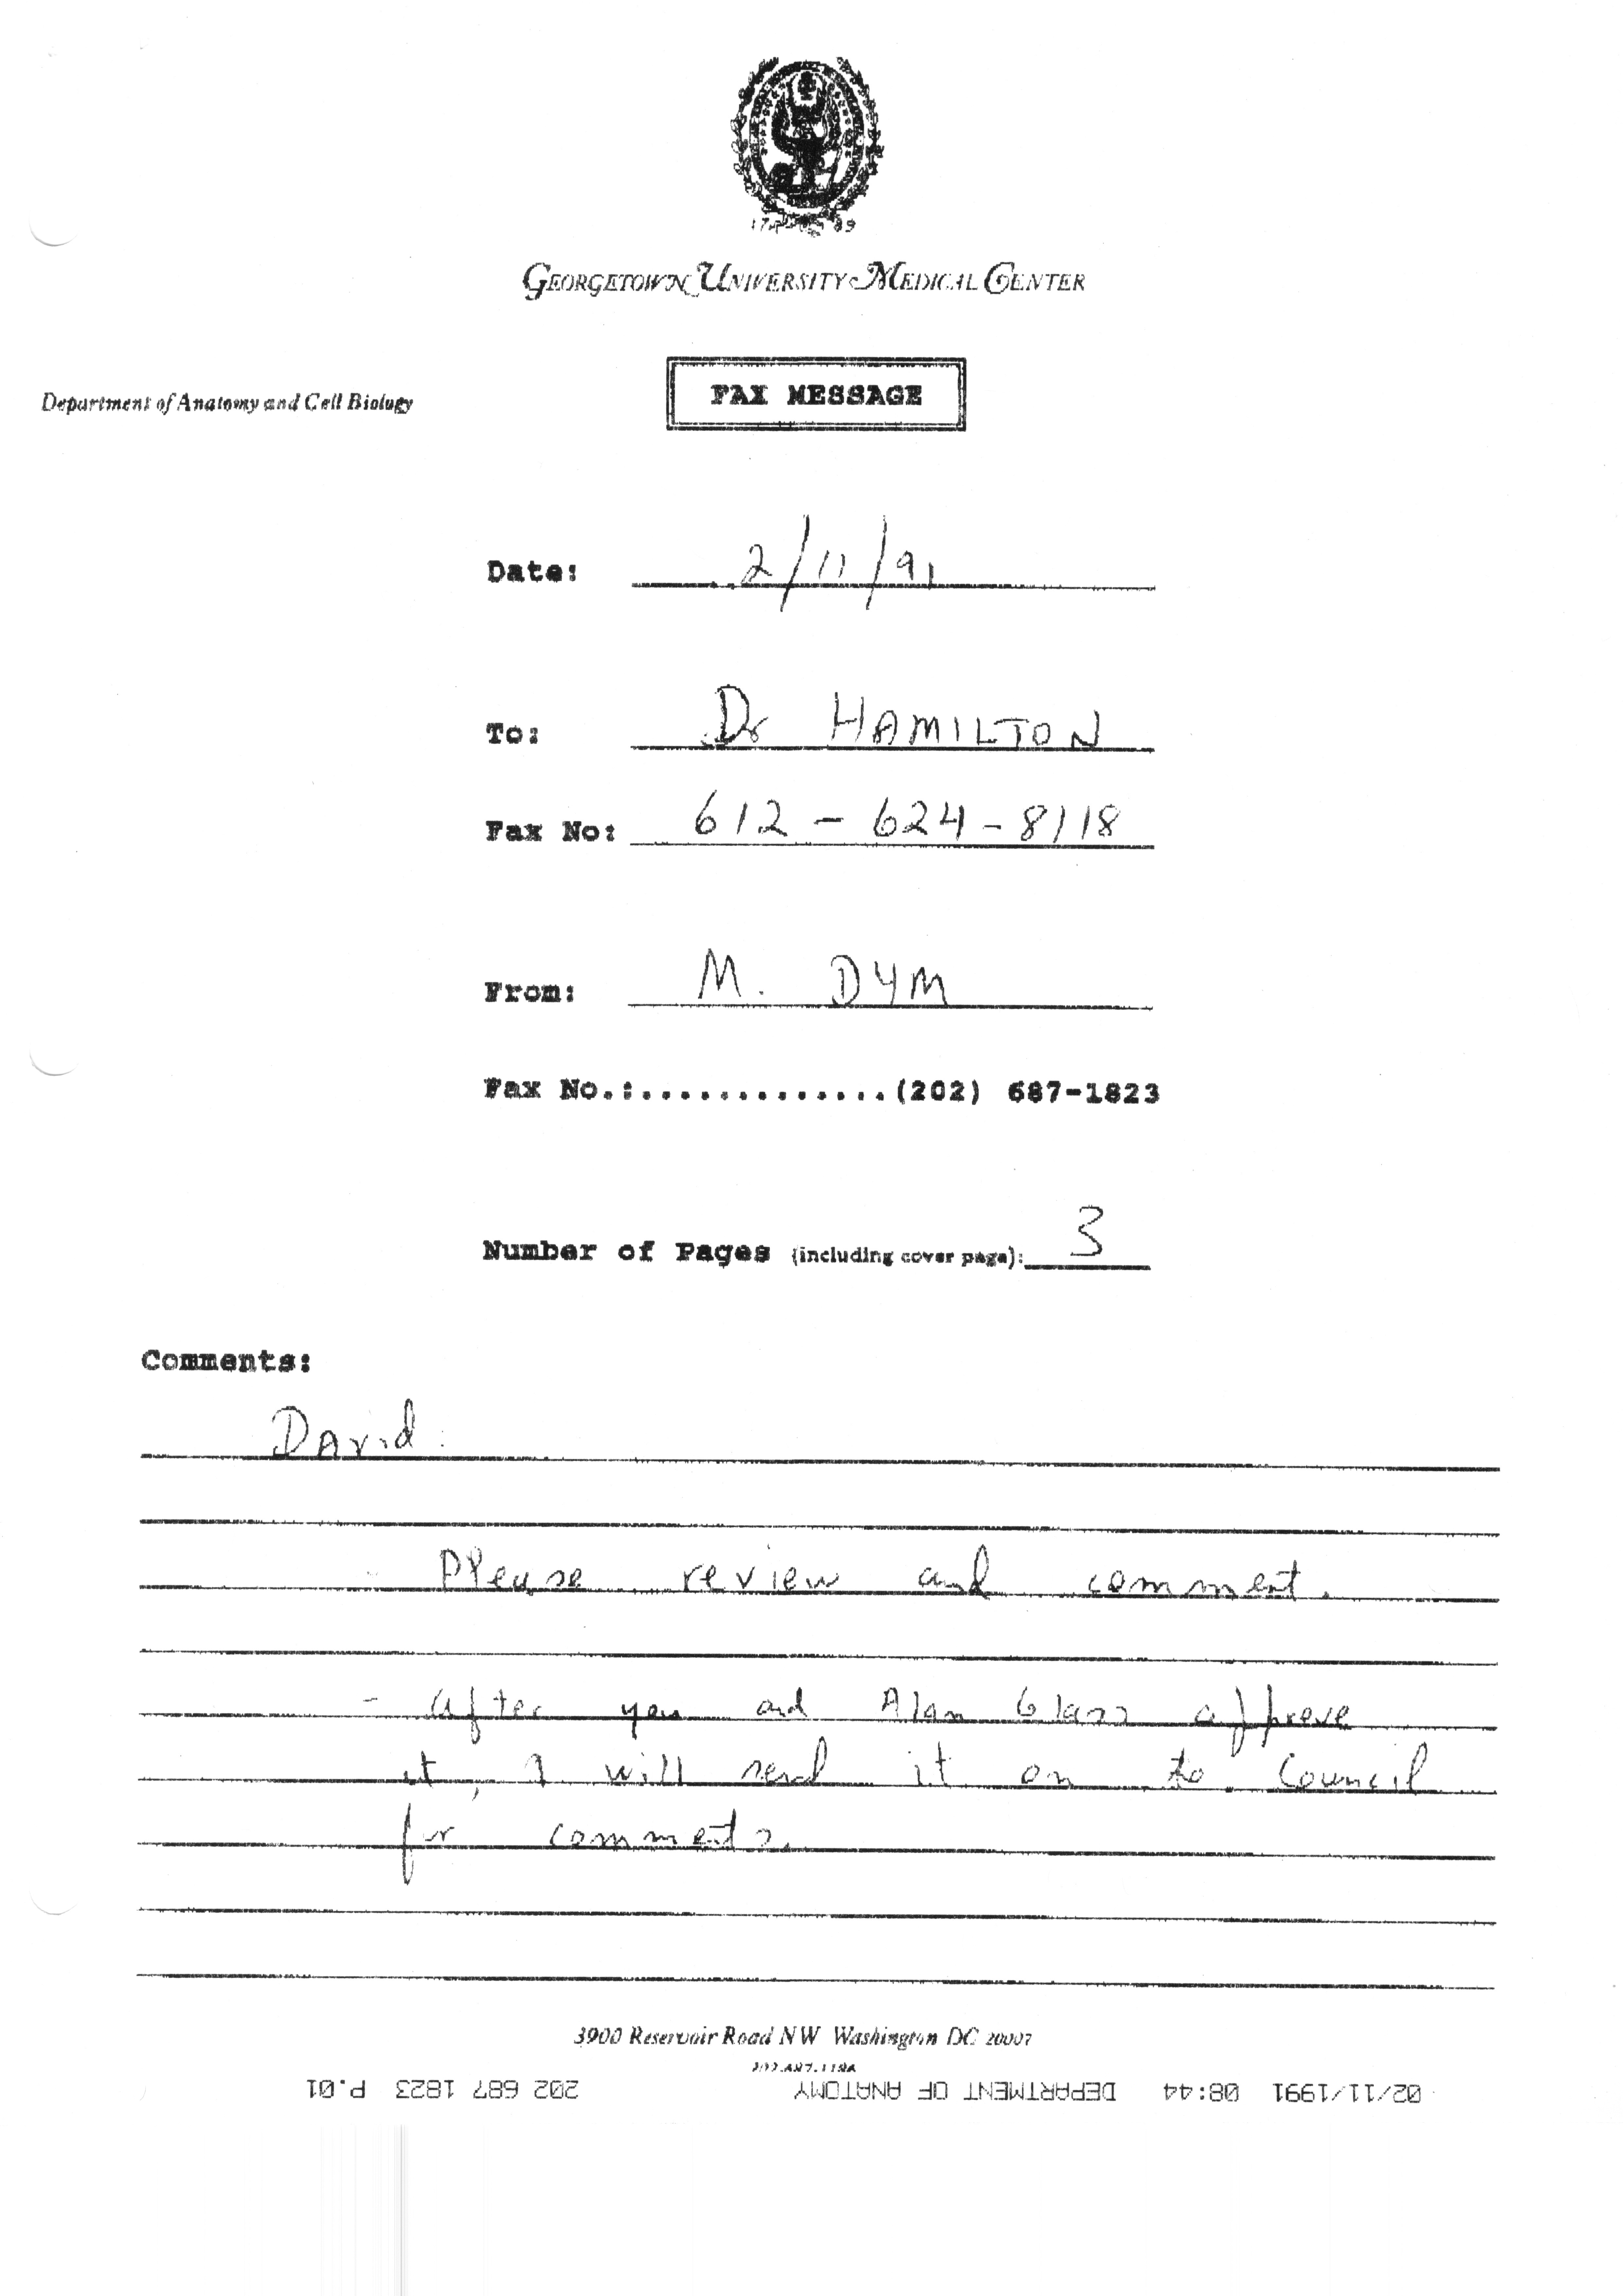 GEORGETOWN UNIVERSITY MEDICAL CENTER
Department of Anatomy and Cell Biology
FAX MESSAGE
Date: 2/11/91
To: Dr HAMILTON
Fax No: 612-624-8118
From: M. DYM
Fax No.:..............(202) 687-1823
Number of Pages (including cover page): 3
Comments:
David.
Please review and comment.
- After you and Alan Glass approve
it, I will send it on to Council
for comments.
3900 Reservoir Road NW Washington DC 20007
02/11/1991 08:44 DEPARTMENT OF ANATOMY 202 687 1823 P.01